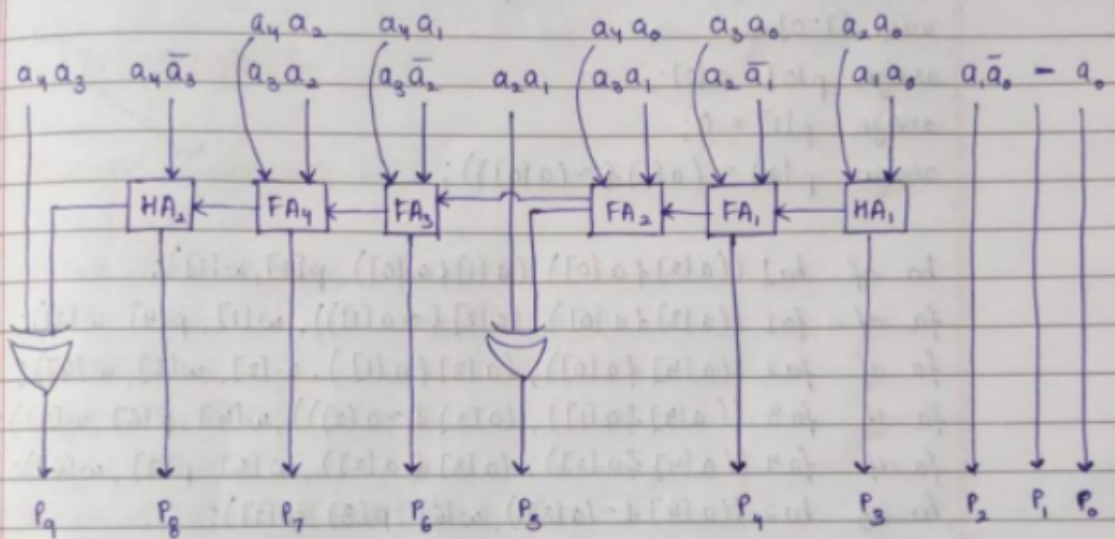 a₄a₂ a₄a₁ a₄a₀ a₃a₀ a₂a₀
a₄a₃ a₄ā₃ a₃a₂ a₃ā₂ a₂a₁ a₃a₁ a₂ā₁ a₁a₀ a₁ā₀ - a₀
HA₂ FA₄ FA₃ FA₂ FA₁ HA₁
P₉ P₈ P₇ P₆ P₅ P₄ P₃ P₂ P₁ P₀